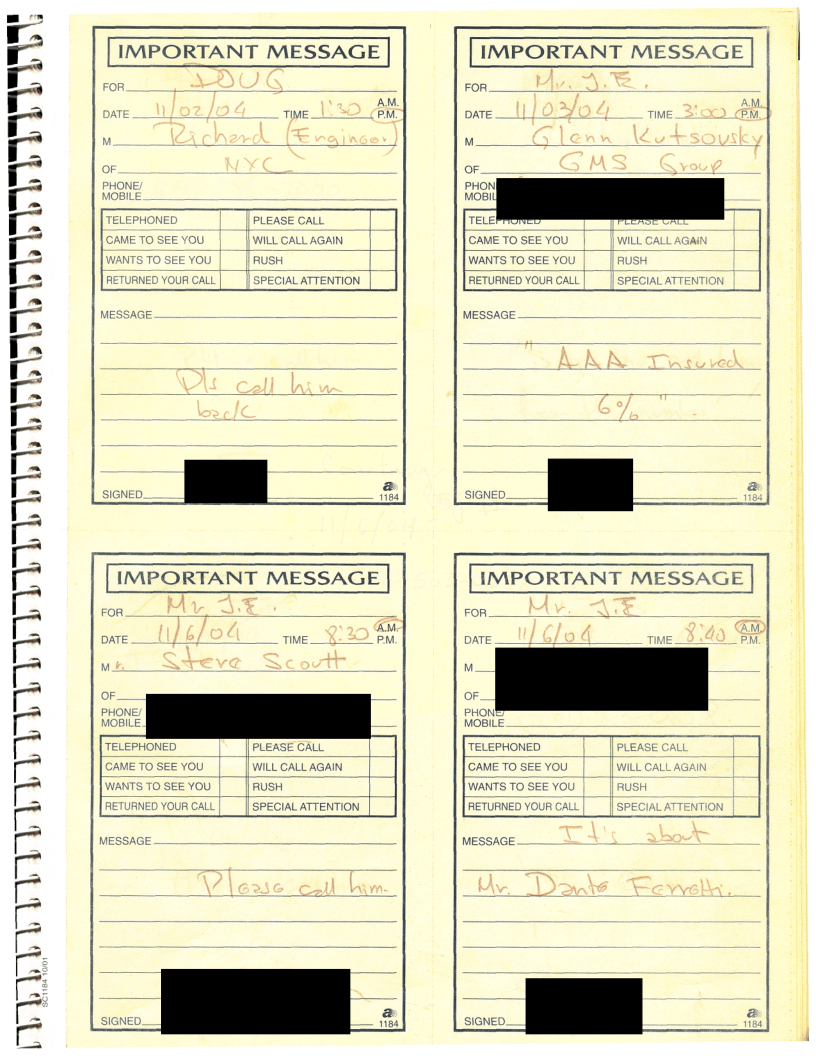 IMPORTANT MESSAGE
FOR DOUG
DATE 11/02/04 TIME 1:30 A.M. P.M.
M Richard (Engineer)
OF NYC
PHONE/
MOBILE
TELEPHONED PLEASE CALL
CAME TO SEE YOU WILL CALL AGAIN
WANTS TO SEE YOU RUSH
RETURNED YOUR CALL SPECIAL ATTENTION
MESSAGE
Pls call him
back
SIGNED
a
1184
IMPORTANT MESSAGE
FOR Mr. J.E.
DATE 11/03/04 TIME 3:00 A.M. P.M.
M Glenn Kutsousky
OF GMS Group
PHON
MOBIL
TELEPHONED PLEASE CALL
CAME TO SEE YOU WILL CALL AGAIN
WANTS TO SEE YOU RUSH
RETURNED YOUR CALL SPECIAL ATTENTION
MESSAGE
" AAA Insured
6% ".
SIGNED
a
1184
IMPORTANT MESSAGE
FOR Mr J.E.
DATE 11/6/04 TIME 8:30 A.M. P.M.
Mr. Steve Scoutt
OF
PHONE/
MOBILE
TELEPHONED PLEASE CALL
CAME TO SEE YOU WILL CALL AGAIN
WANTS TO SEE YOU RUSH
RETURNED YOUR CALL SPECIAL ATTENTION
MESSAGE
Please call him.
SIGNED
a
1184
IMPORTANT MESSAGE
FOR Mr. J.E
DATE 11/6/04 TIME 8:40 A.M. P.M.
M
OF
PHONE/
MOBILE
TELEPHONED PLEASE CALL
CAME TO SEE YOU WILL CALL AGAIN
WANTS TO SEE YOU RUSH
RETURNED YOUR CALL SPECIAL ATTENTION
MESSAGE It's about
Mr. Dante Ferretti.
SIGNED
a
1184
SC1184 10/01